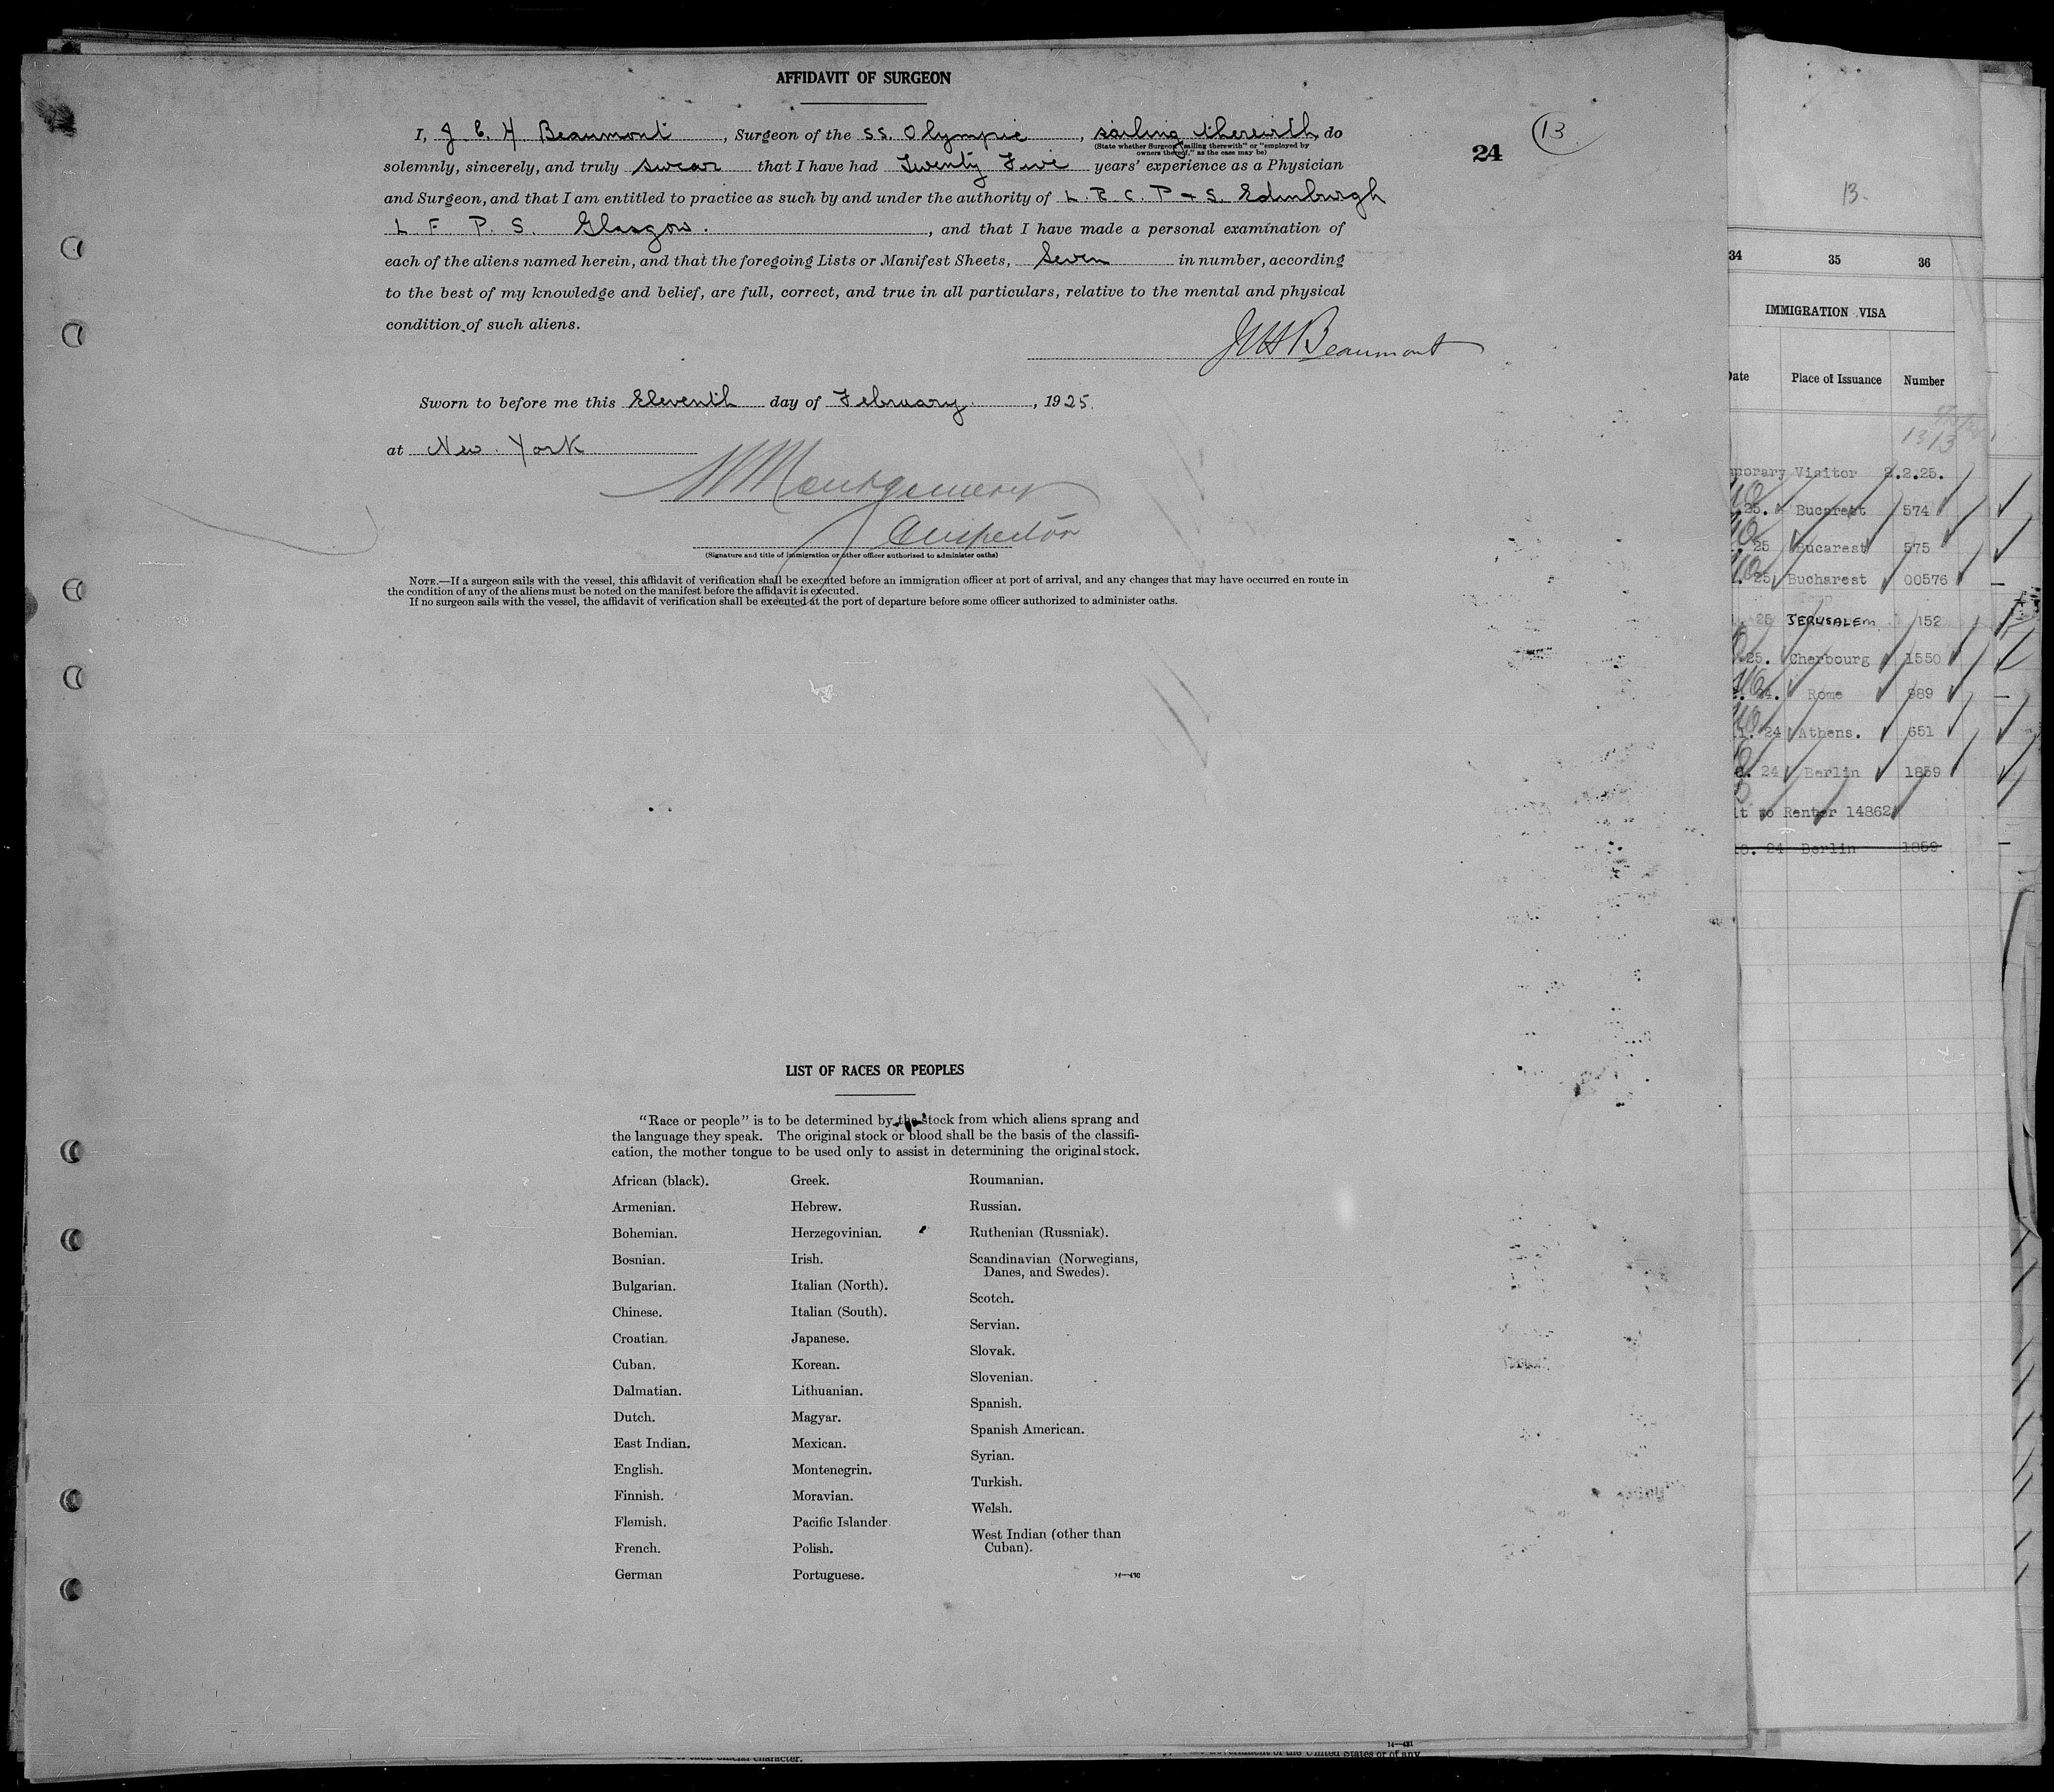 AFFIDAVIT OF SURGEON
13
24
I, J C. H Beaumont, Surgeon of the SS. Olympic, sailing therewith do
(State whether Surgeon "sailing therewith" or "employed by
owners thereof," as the case may be)
solemnly, sincerely, and truly swear that I have had Twenty Five years' experience as a Physician
and Surgeon, and that I am entitled to practice as such by and under the authority of L. R. C. P + S. Edinburgh
L F P. S. Glasgow., and that I have made a personal examination of
each of the aliens named herein, and that the foregoing Lists or Manifest Sheets, Seven in number, according
to the best of my knowledge and belief, are full, correct, and true in all particulars, relative to the mental and physical
condition of such aliens.
Beaumont
Sworn to before me this Eleventh day of February, 1925.
at New York
Montgomery
Inspector
(Signature and title of immigration or other officer authorized to administer oaths)
NOTE.—If a surgeon sails with the vessel, this affidavit of verification shall be executed before an immigration officer at port of arrival, and any changes that may have occurred en route in
the condition of any of the aliens must be noted on the manifest before the affidavit is executed.
If no surgeon sails with the vessel, the affidavit of verification shall be executed at the port of departure before some officer authorized to administer oaths.
LIST OF RACES OR PEOPLES
"Race or people" is to be determined by the stock from which aliens sprang and
the language they speak. The original stock or blood shall be the basis of the classifi-
cation, the mother tongue to be used only to assist in determining the original stock.
African (black).
Armenian.
Bohemian.
Bosnian.
Bulgarian.
Chinese.
Croatian.
Cuban.
Dalmatian.
Dutch.
East Indian.
English.
Finnish.
Flemish.
French.
German
Greek.
Hebrew.
Herzegovinian.
Irish.
Italian (North).
Italian (South).
Japanese.
Korean.
Lithuanian.
Magyar.
Mexican.
Montenegrin.
Moravian.
Pacific Islander
Polish.
Portuguese.
Roumanian.
Russian.
Ruthenian (Russniak).
Scandinavian (Norwegians,
Danes, and Swedes).
Scotch.
Servian.
Slovak.
Slovenian.
Spanish.
Spanish American.
Syrian.
Turkish.
Welsh.
West Indian (other than
Cuban).
13.
34 35 36
IMMIGRATION VISA
Date Place of Issuance Number
1313
porary Visitor 2.2.25.
25. Bucarest 574
25 Bucarest 575
25 Bucharest 00576
25 JERUSALEM 152
25. Cherbourg 1550
24. Rome 989
24 Athens. 651
24 Berlin 1859
it to Renter 14862
24 Berlin 1859
14—431
of the United States or of any
character.